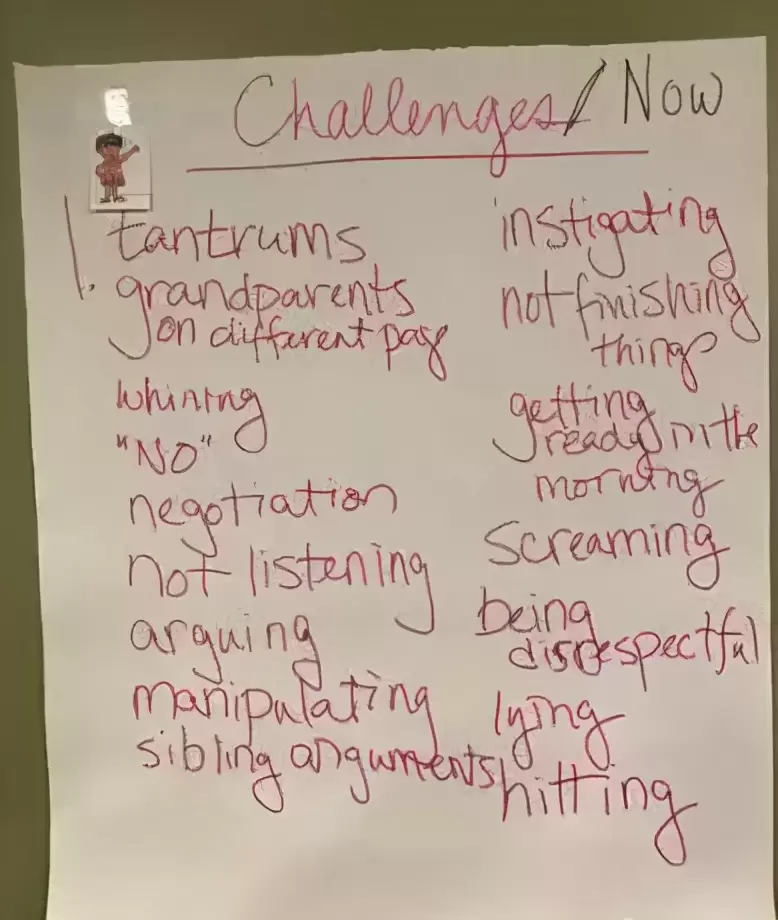 Challenges/Now
tantrums
grandparents
on different page
whining
"NO"
negotiation
not listening
arguing
manipulating
sibling arguments
instigating
not finishing
things
getting
ready in the
morning
screaming
being
disrespectful
lying
hitting